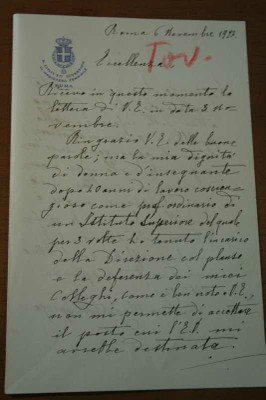 Roma 6 Novembre 1923.
ROMA
Eccellenza
Ricevo in questo momento la
lettera di V.E. in data 3 No-
vembre.
Ringrazio V.E. delle buone
parole; ma la mia dignità
di donna e d'insegnante
dopo anni di lavoro coscien-
zioso come prof. ordinario di
un Istituto Superiore del quale
per 3 volte ho tenuto l'incarico
della Direzione col plauso
e la deferenza dei miei
Colleghi, come è ben noto a V.E.,
non mi permette di accettare
il posto cui l'E.V. mi
avrebbe destinata.